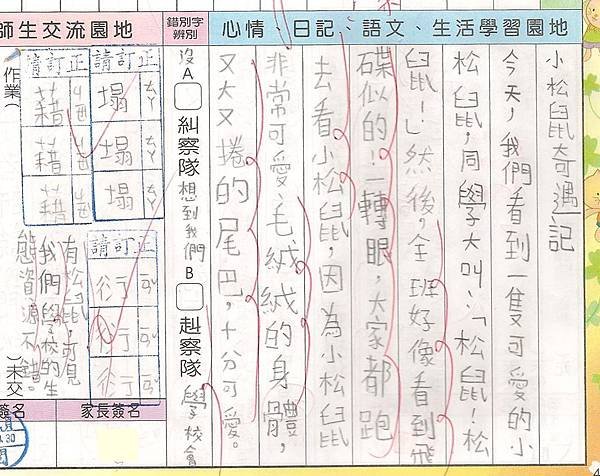 心情、日記、語文、生活學習園地
小松鼠奇遇記
今天，我們看到一隻可愛的小
松鼠，同學大叫：「松鼠！松
鼠！」然後，全班好像看到飛
碟似的！一轉眼，大家都跑
去看小松鼠，因為小松鼠
非常可愛、毛絨絨的身體，
又大又捲的尾巴，十分可愛。
錯別字
辨別
A 糾察隊 B 赳察隊
沒想到我們學校會
師生交流園地
有松鼠，可見
我們學校的生
態資源不錯。
請訂正
塌
塌
塌
請訂正
藉
藉
藉
請訂正
作業
未交
家長簽名
簽名